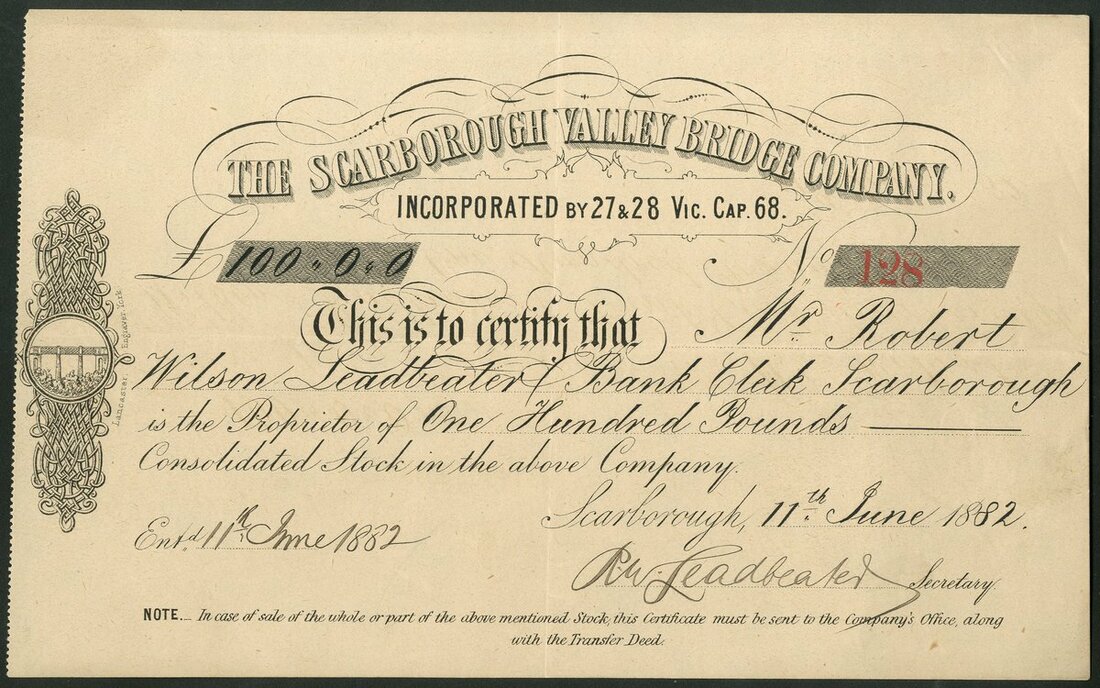 THE SCARBOROUGH VALLEY BRIDGE COMPANY.
INCORPORATED BY 27 & 28 VIC. CAP. 68.
£ 100 " 0 " 0
No 128
This is to certify that Mr. Robert
Wilson Leadbeater Bank Clerk Scarborough
is the Proprietor of One Hundred Pounds
Consolidated Stock in the above Company.
Scarborough, 11th June 1882.
Entd. 11th June 1882
R W Leadbeater Secretary.
NOTE._ In case of sale of the whole or part of the above mentioned Stock, this Certificate must be sent to the Company's Office, along
with the Transfer Deed.
Lancaster Engraver York